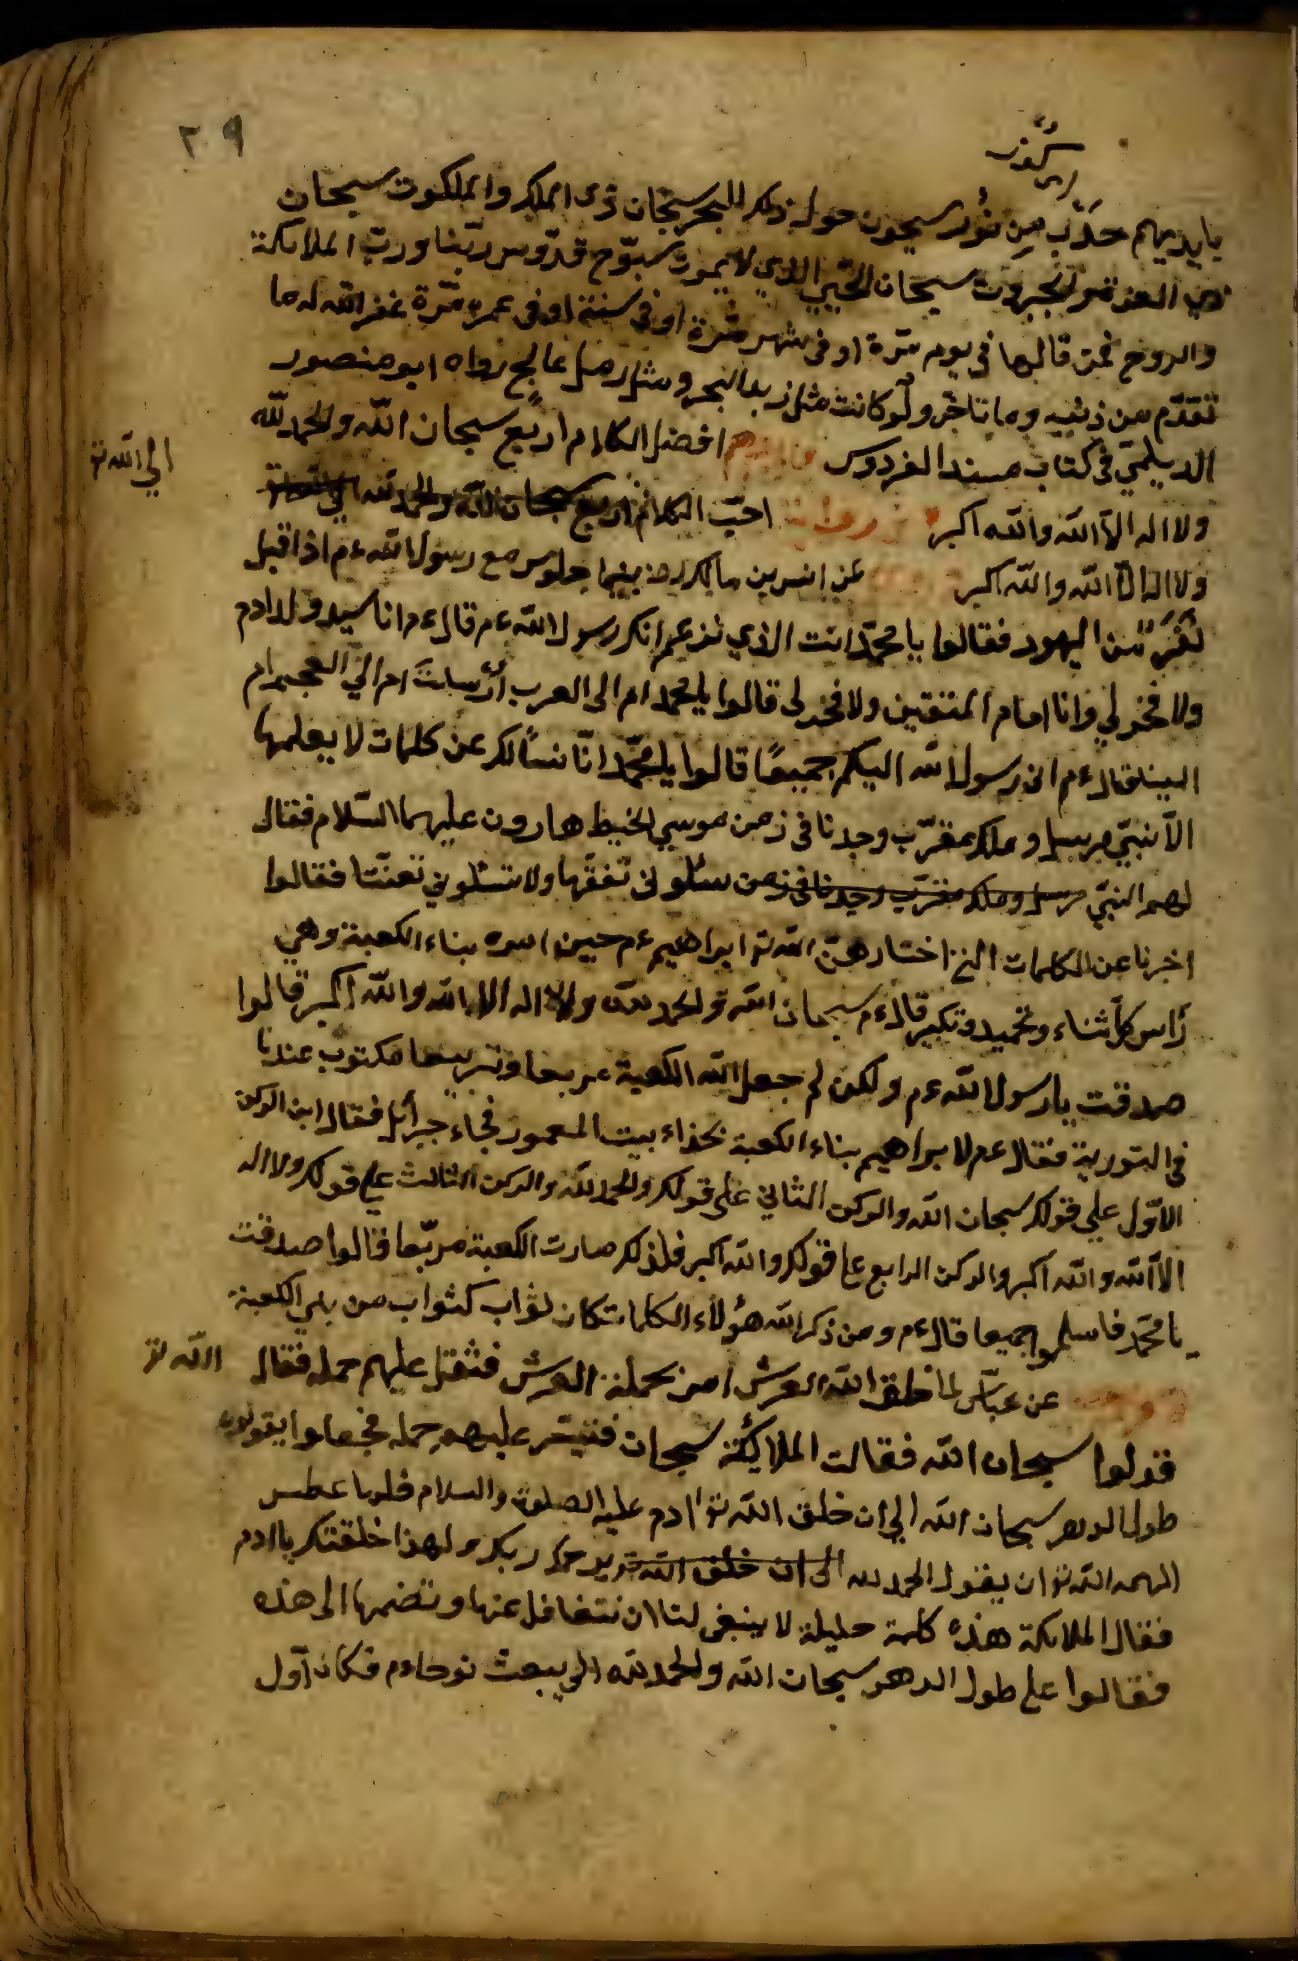 ٢٠٩
بايديهم حدب من نور يسبحون حول ذلك البحر سبحان ذى الملك والملكوت سبحان
ذى العزة والجبروت سبحان الحيي الذي لا يموت سبوّح قدّوس ربّنا وربّ الملائكة
والروح فمن قالها في يوم مرّة او في شهر مرّة او في سنة او في عمره مرّة غفر الله له ما
تقدّم من ذنبه وما تاخّر ولو كانت مثل زبد البحر ومثل رمل عالج رواه ابو منصور
الديلميّ في كتاب مسند الفردوس افضل الكلام اربع سبحان الله والحمد لله
ولا اله الاّ الله والله اكبر احبّ الكلام اربع سبحان الله والحمد لله
الي الله تع
ولا اله الاّ الله والله اكبر عن انس بن مالك رض بينما جلوس مع رسول الله ءم اذا قبل
نفر من اليهود فقالوا يا محمّد انت الذي تزعم انك رسول الله ءم قال ءم انا سيد ولد ادم
ولا فخر لي وانا امام المتقين ولا فخر لى قالوا يا محمد ام الى العرب ارسلت ام الي العجم ام
الينا قال ءم انى رسول الله اليكم جميعًا قالوا يا محمّد انّا نسالك عن كلمات لا يعلمها
الاّ نبيّ مرسل وملك مقرّب وجدنا في زمن موسي لخيط هارون عليهما السّلام فقال
لهم النبيّ مرسل وملك مقرّب وجدنا في زمن سئلونى تفقّها ولا تسئلوني تعنّتا فقالوا
اخرنا عن الكلمات التي اختارهنّ الله تع ابراهيم ءم حين امره بناء الكعبة وهي
رأس كل ثناء وتحميد وتكبير قال ءم سبحان الله والحمد لله ولا اله الا الله والله اكبر قالوا
صدقت يا رسول الله ءم ولكن لم جعل الله الكعبة مربعا وتربيعها مكتوب عندنا
في التورية فقال ءم لا براهيم بناء الكعبة بحذاء بيت المعمور فجاء جبرائل فقال ابن الركن
الاوّل علي قولك سبحان الله والركن الثاني على قولك والحمد لله والركن الثالث علي قولك ولا اله
الاّ الله والله اكبر والركن الرابع علي قولك والله اكبر فلذلك صارت الكعبة مربّعا قالوا صدقت
يا محمّد فاسلموا جميعا قال ءم ومن ذكر الله هؤلاء الكلمات كان ثواب كثواب من بني الكعبة
عن عباس لما خلق الله العرش امر بحملة العرش فثقل عليهم حمله فقال الله تع
قولوا سبحان الله فقالت الملائكة سبحان فتيسّر عليهم حمله فجعلوا يقولون
طول الدهر سبحان الله الي ان خلق الله تع ادم عليه الصلوة والسلام فلما عطس
الهمه الله تع ان يقول الحمد لله الى ان خلق الله يرحمك ربك ولهذا خلقتك يا ادم
فقال الملائكة هذه كلمة جليلة لا ينبغي لنا ان نتغافل عنها وتضمها الى هذه
فقالوا علي طول الدهر سبحان الله والحمد لله الي يبعث نوحا ءم فكان اوّل